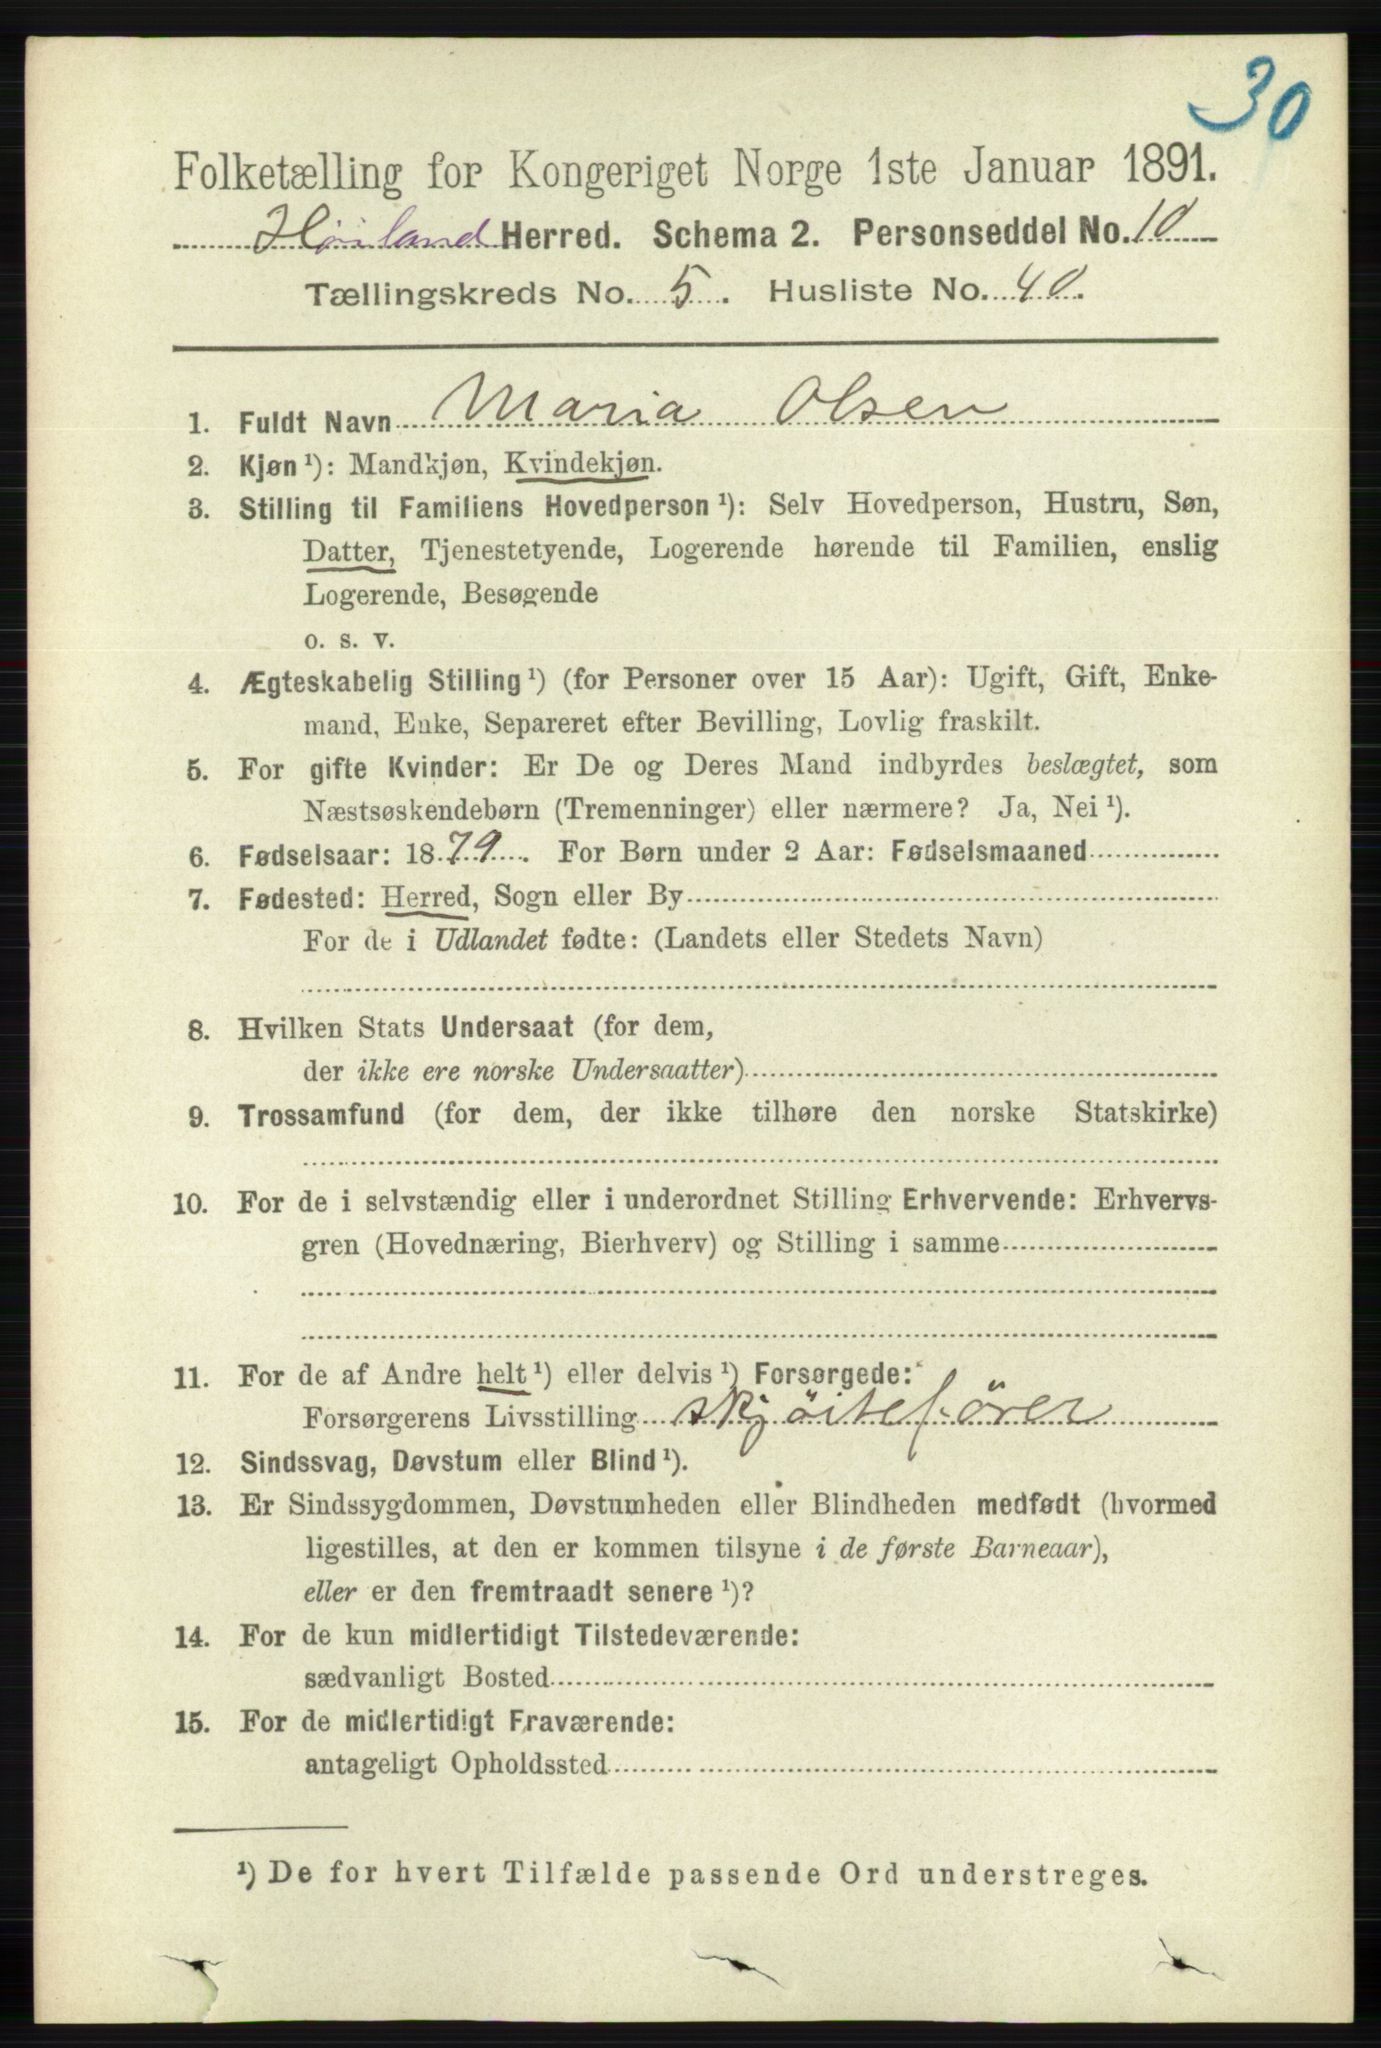 30
Folketælling for Kongeriget Norge 1ste Januar 1891.
Høiland Herred. Schema 2. Personseddel No. 10
Tællingskreds No. 5. Husliste No. 40.
1. Fuldt Navn Maria Olsen
2. Kjøn ¹): Mandkjøn, Kvindekjøn.
3. Stilling til Familiens Hovedperson ¹): Selv Hovedperson, Hustru, Søn,
Datter, Tjenestetyende, Logerende hørende til Familien, enslig
Logerende, Besøgende
o. s. v.
4. Ægteskabelig Stilling ¹) (for Personer over 15 Aar): Ugift, Gift, Enke-
mand, Enke, Separeret efter Bevilling, Lovlig fraskilt.
5. For gifte Kvinder: Er De og Deres Mand indbyrdes beslægtet, som
Næstsøskendebørn (Tremenninger) eller nærmere? Ja, Nei ¹).
6. Fødselsaar: 1879. For Børn under 2 Aar: Fødselsmaaned
7. Fødested: Herred, Sogn eller By
For de i Udlandet fødte: (Landets eller Stedets Navn)
8. Hvilken Stats Undersaat (for dem,
der ikke ere norske Undersaatter)
9. Trossamfund (for dem, der ikke tilhøre den norske Statskirke)
10. For de i selvstændig eller i underordnet Stilling Erhvervende: Erhvervs-
gren (Hovednæring, Bierhverv) og Stilling i samme
11. For de af Andre helt ¹) eller delvis ¹) Forsørgede:
Forsørgerens Livsstilling skjöitefører
12. Sindssvag, Døvstum eller Blind ¹).
13. Er Sindssygdommen, Døvstumheden eller Blindheden medfødt (hvormed
ligestilles, at den er kommen tilsyne i de første Barneaar),
eller er den fremtraadt senere ¹)?
14. For de kun midlertidigt Tilstedeværende:
sædvanligt Bosted
15. For de midlertidigt Fraværende:
antageligt Opholdssted
¹) De for hvert Tilfælde passende Ord understreges.